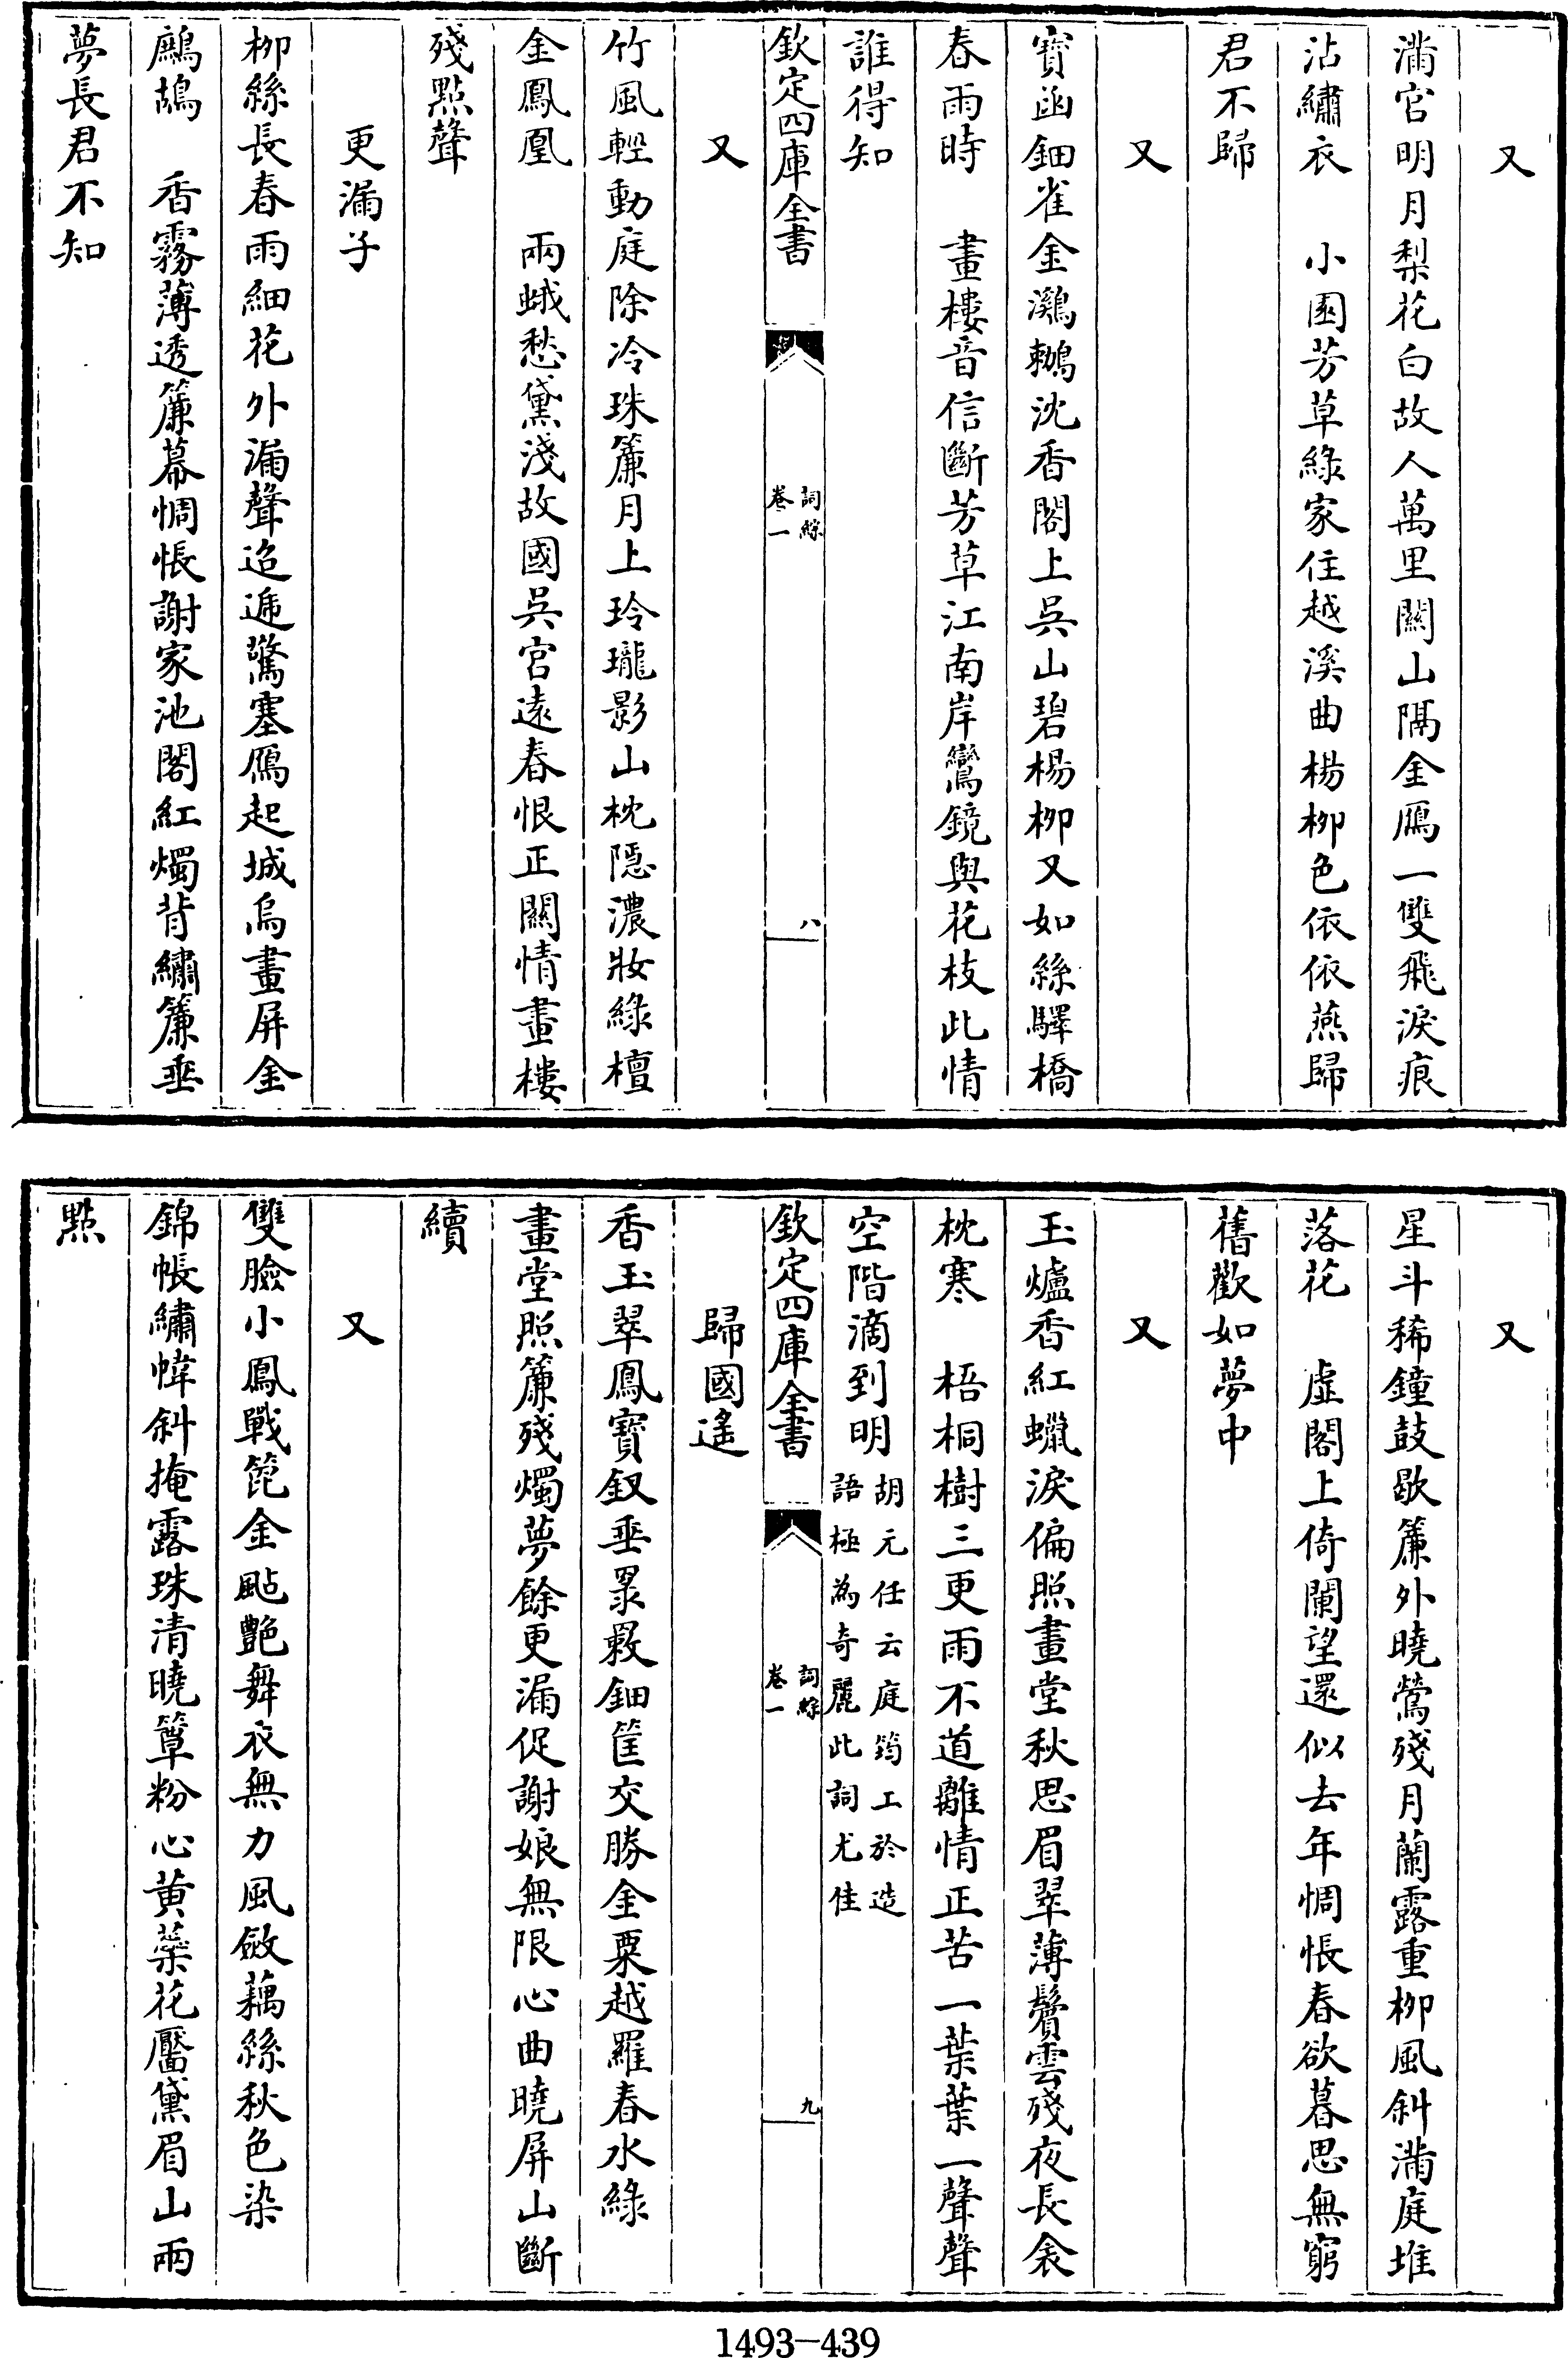 又
滿宫明月梨花白故人萬里關山隔金鴈一雙飛淚痕
沾繡衣　小園芳草綠家住越溪曲楊栁色依依燕歸
君不歸
又
寳函鈿雀金鸂鶒沈香閣上吳山碧楊栁又如絲驛橋
春雨時　畫樓音信斷芳草江南岸鸞鏡與花枝此情
誰得知
欽定四庫全書
詞綜
卷一
八
又
竹風輕動庭除冷珠簾月上玲瓏影山枕隱濃妝綠檀
金鳳凰　兩蛾愁黛淺故國吳宫遠春恨正關情畫樓
殘點聲
更漏子
栁絲長春雨細花外漏聲迢遞驚塞鴈起城烏畫屏金
鷓鴣　香霧薄透簾幕惆悵謝家池閣紅燭背繡簾垂
夢長君不知
又
星斗稀鐘鼓歇簾外曉鶯殘月蘭露重栁風斜滿庭堆
落花　虛閣上倚闌望還似去年惆悵春欲暮思無窮
舊歡如夢中
又
玉爐香紅蠟淚偏照畫堂秋思眉翠薄鬢雲殘夜長衾
枕寒　梧桐樹三更雨不道離情正苦一葉葉一聲聲
空階滴到明
胡元任云庭筠工於造
語極為奇麗此詞尤佳
欽定四庫全書
詞綜
卷一
九
歸國遙
香玉翠鳳寳釵垂䍁䍡鈿筐交勝金粟越羅春水綠
畫堂照簾殘燭夢餘更漏促謝娘無限心曲曉屏山斷
續
又
雙臉小鳳戰箆金颭艶舞衣無力風斂藕絲秋色染
錦帳繡幃斜掩露珠清曉簟粉心黄蘂花靨黛眉山兩
點
1493—439